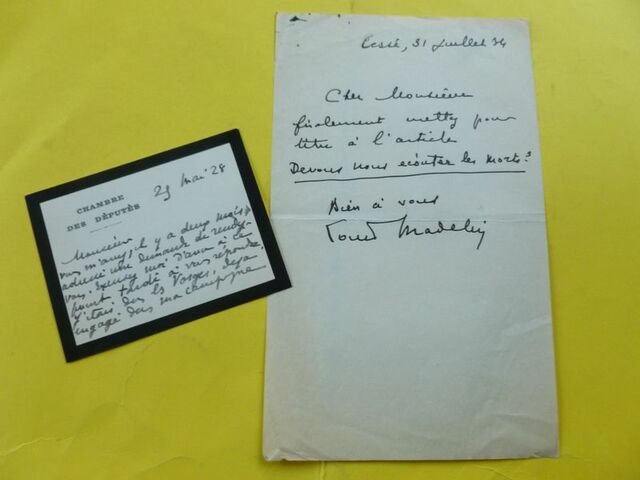 CHAMBRE
DES DÉPUTÉS
29 mai 28
Monsieur
vous m'avez, il y a deux mois,
adressé une demande de rendez-
vous. Excusez moi d'avoir à ce
point tardé à vous répondre,
j'étais dans les Vosges, déjà
engagé dans ma campagne
31 juillet 34
Cher Monsieur
finalement mettez pour
titre à l'article
Devons nous écouter les morts ?
Bien à vous
Louis Madelin